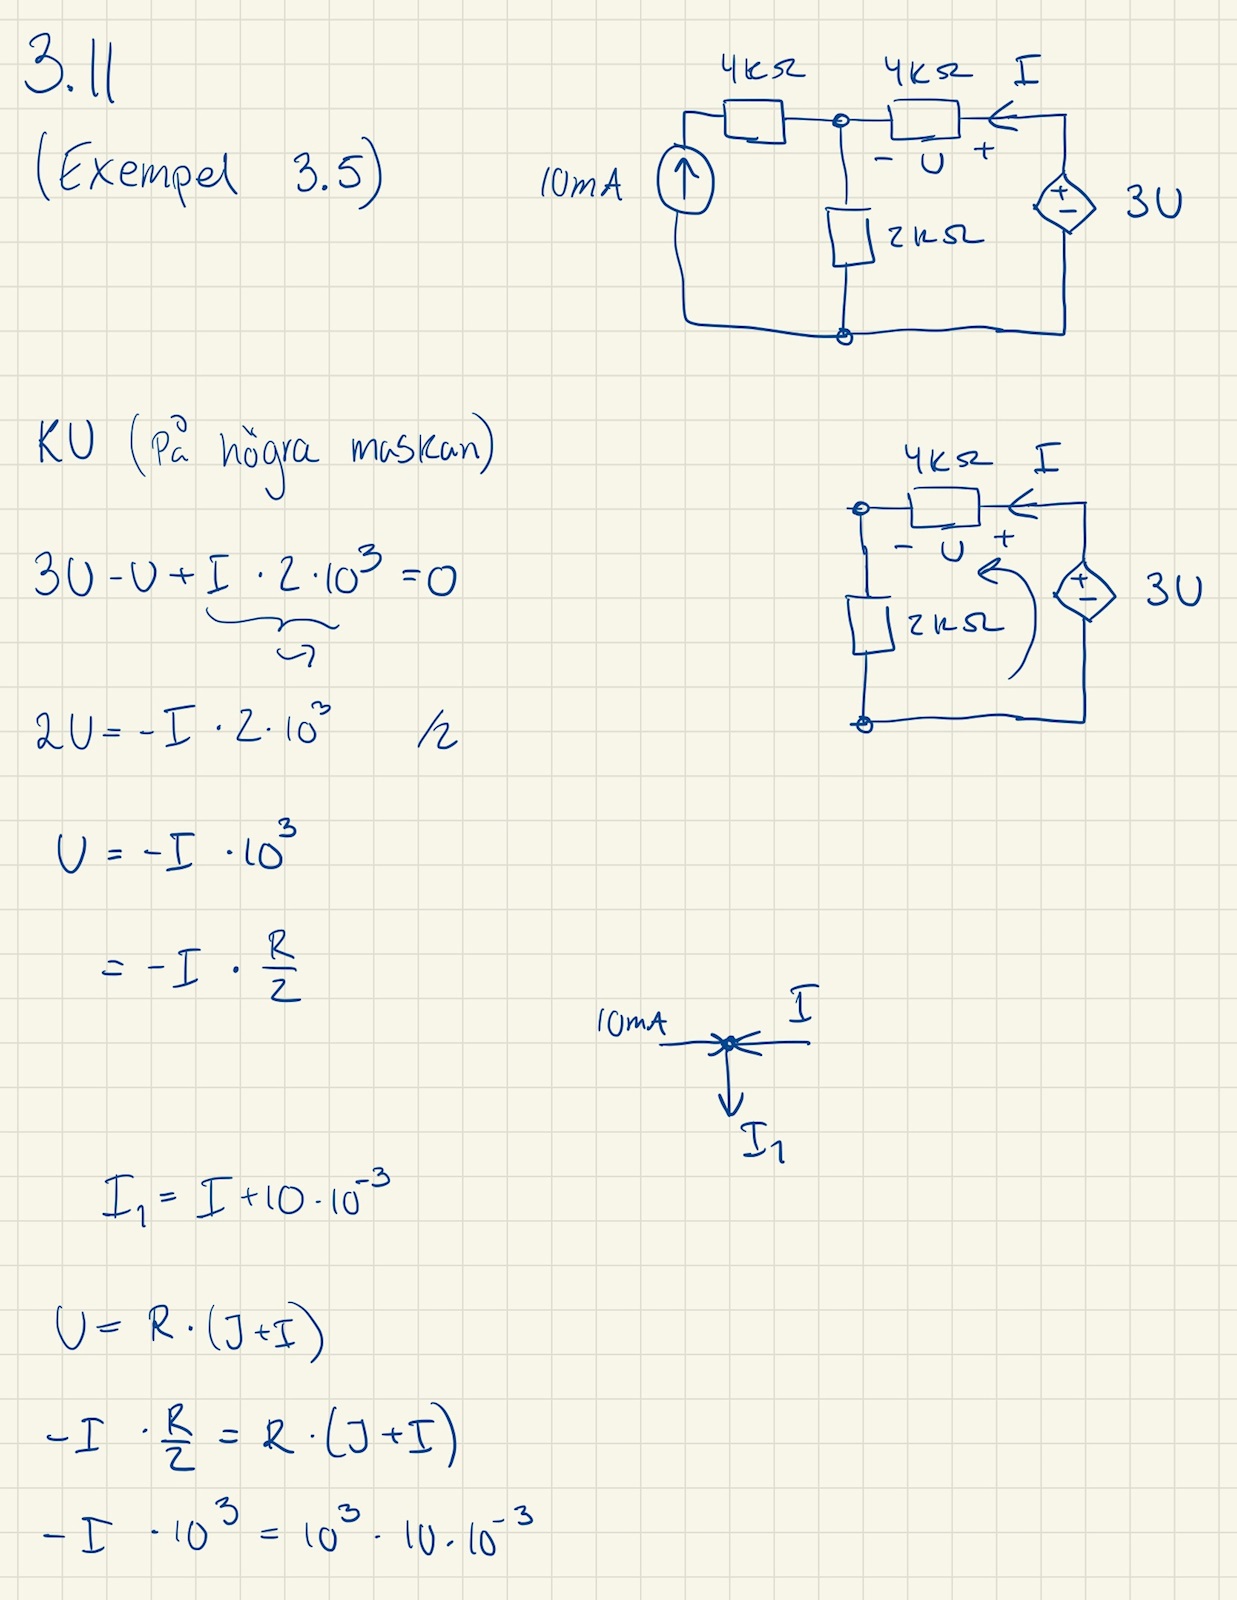 3.11
(Exempel 3.5)
4kΩ 4kΩ I
10mA
- U +
3U
+
-
2kΩ
KU (På högra maskan)
4kΩ I
- U +
3U
+
-
2kΩ
3U - U + I · 2 · 10³ = 0
2U = - I · 2 · 10³ /2
U = - I · 10³
= - I · R/2
10mA I
I₁
I₁ = I + 10 · 10⁻³
U = R · (J + I)
- I · R/2 = R · (J + I)
- I · 10³ = 10³ · 10 · 10⁻³